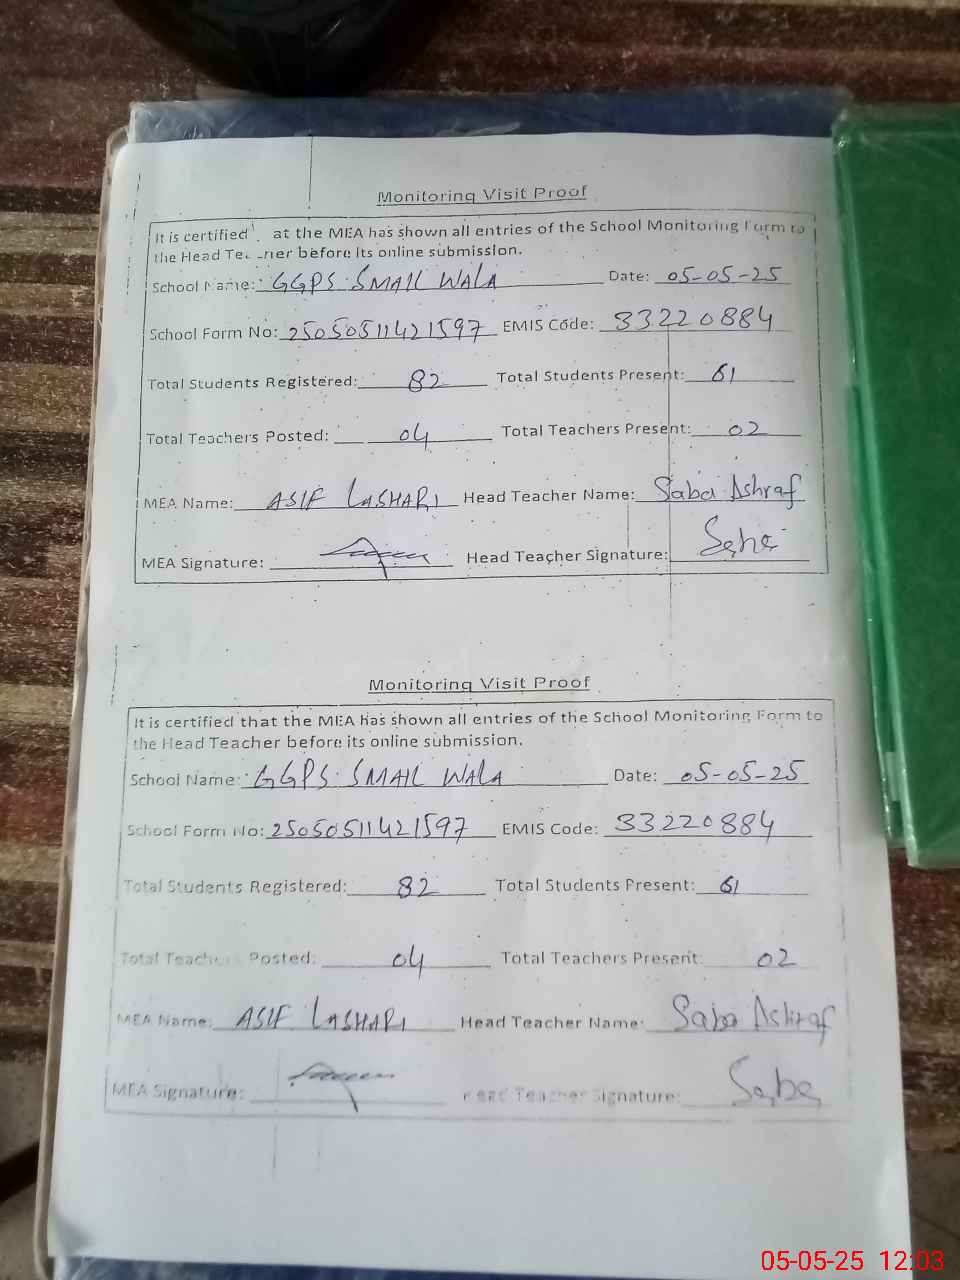 Monitoring Visit Proof
It is certified at the MEA has shown all entries of the School Monitoring Form to
the Head Teacher before its online submission.
School Name: GGPS SMAIL WALA Date: 05-05-25
School Form No: 25050511421597 EMIS Code: 33220884
Total Students Registered: 82 Total Students Present: 61
Total Teachers Posted: 04 Total Teachers Present: 02
MEA Name: ASIF LASHARI Head Teacher Name: Saba Ashraf
MEA Signature: Head Teacher Signature: Saba
Monitoring Visit Proof
It is certified that the MEA has shown all entries of the School Monitoring Form to
the Head Teacher before its online submission.
School Name: GGPS SMAIL WALA Date: 05-05-25
School Form No: 25050511421597 EMIS Code: 33220884
Total Students Registered: 82 Total Students Present: 61
Total Teachers Posted: 04 Total Teachers Present: 02
MEA Name: ASIF LASHARI Head Teacher Name: Saba Ashraf
MEA Signature: Head Teacher Signature: Saba
05-05-25 12:03